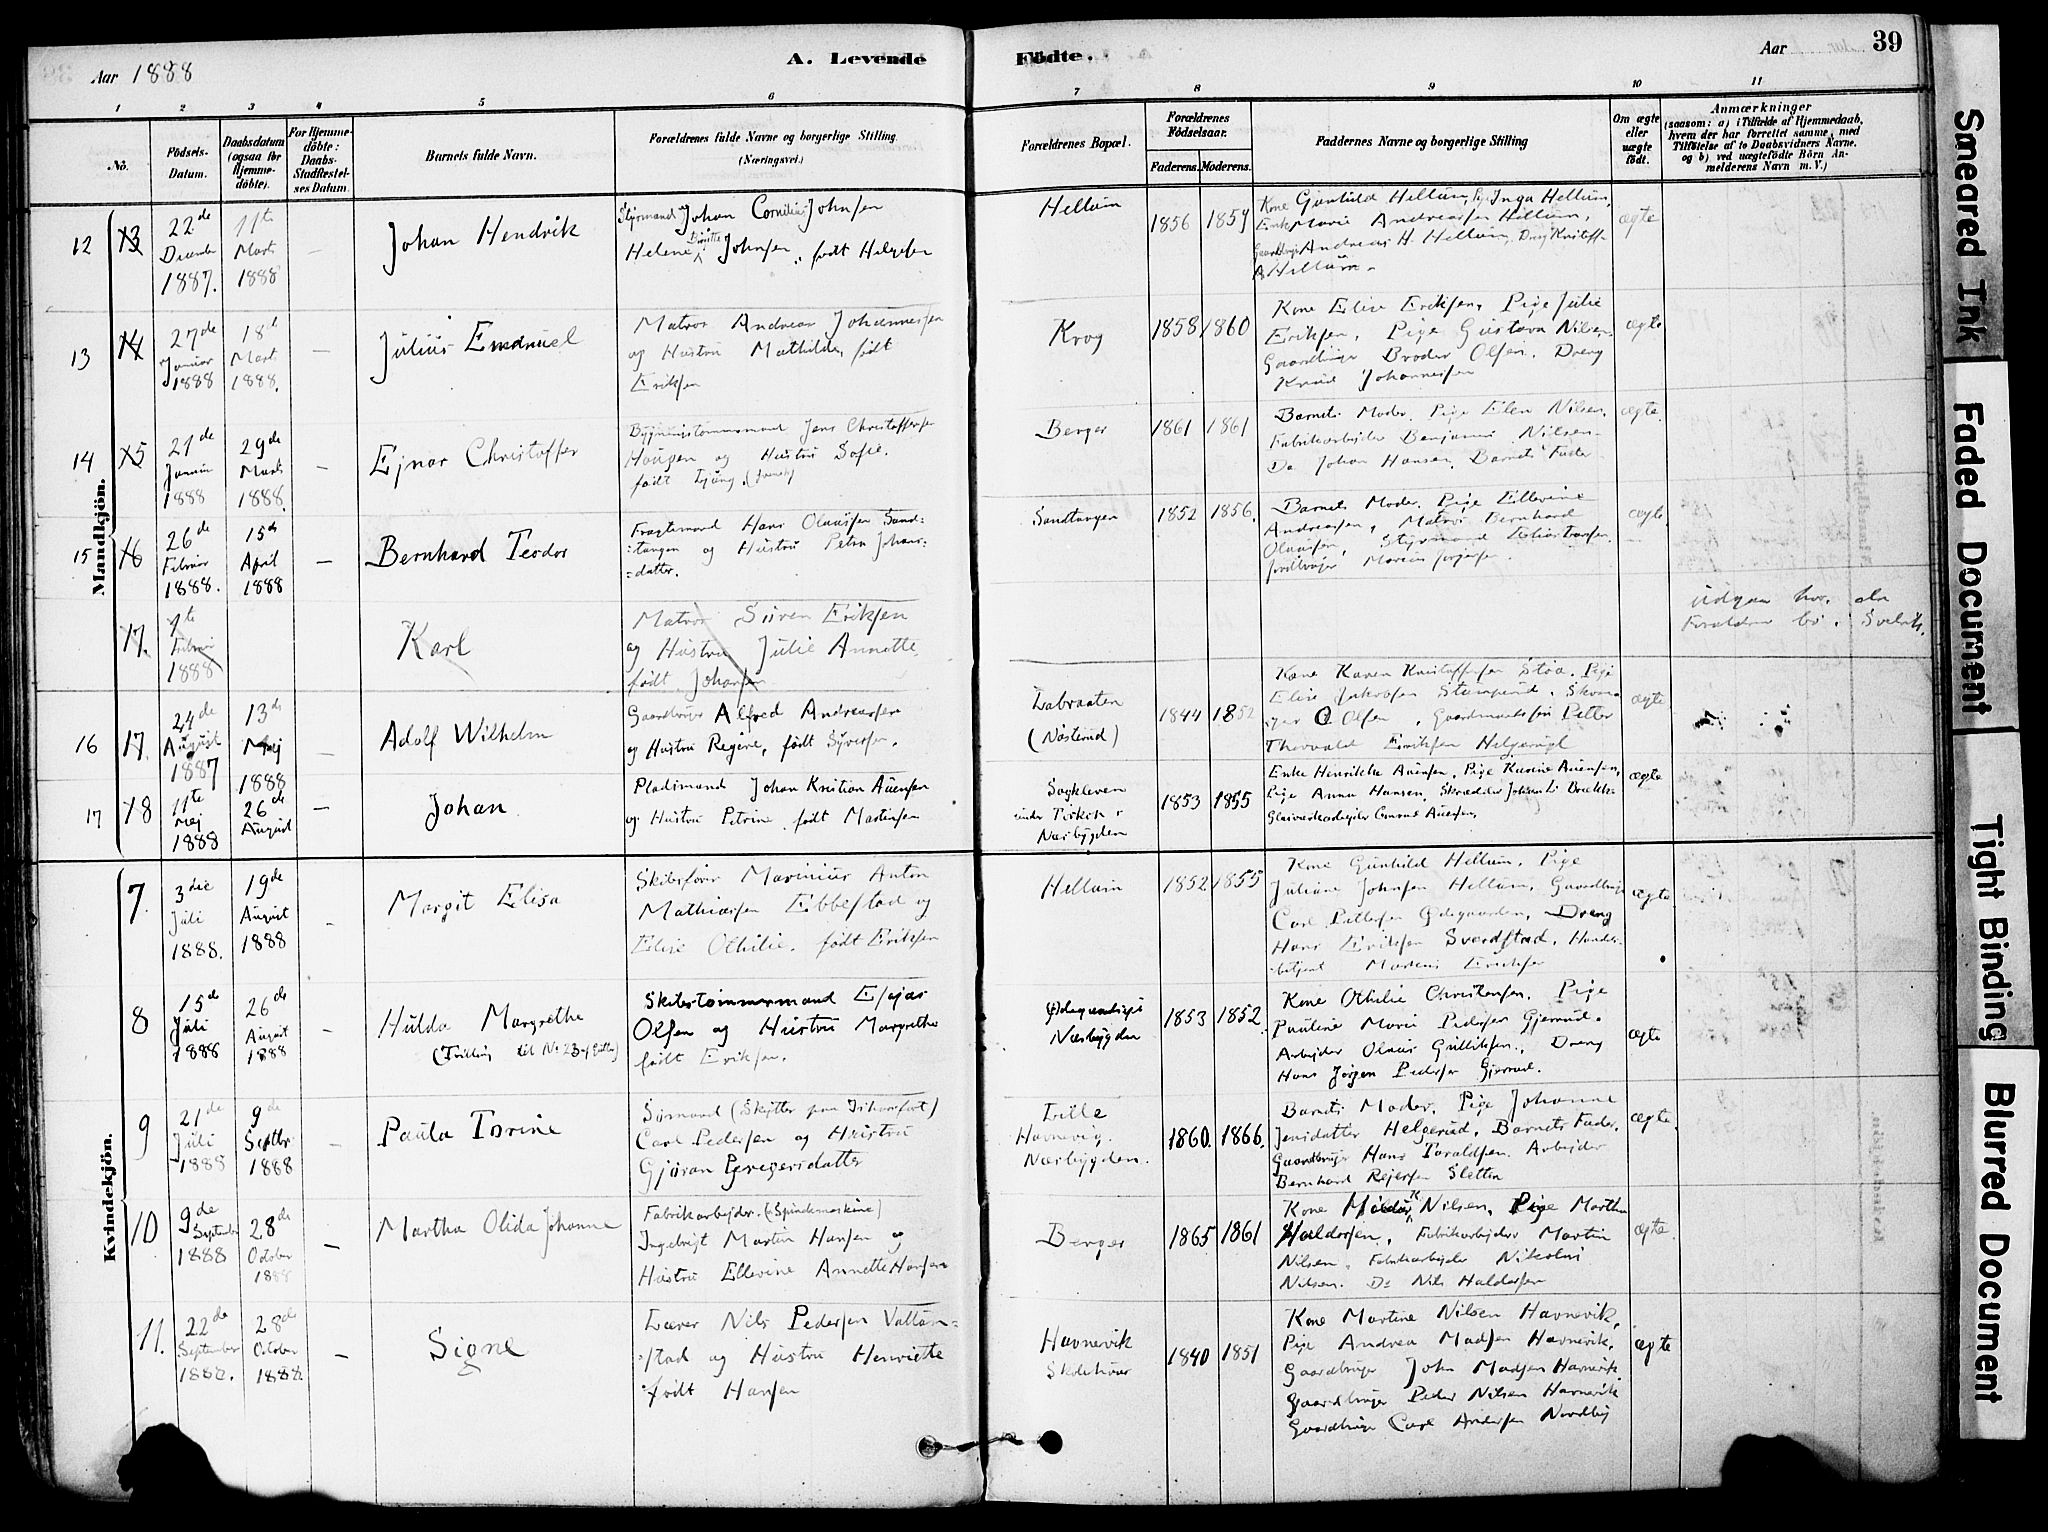 Aar 1888
A. Levende
Fødte.
Aar
39
1
2
3
4
5
6
7
8
9
10
11
No.
Födsels-
Datum.
Daabsdatum
(ogsaa for
Hjemme-
döbte).
For Hjemme-
döbte:
Daabs-
Stadfæstel-
ses Datum.
Barnets fulde Navn.
Forældrenes fulde Navne og borgerlige Stilling.
(Næringsvei.)
Forældrenes Bopæl.
Forældrenes
Födselsaar.
Faderens.
Moderens.
Faddernes Navne og borgerlige Stilling
Om ægte
eller
uægte
födt.
Anmærkninger
(saasom: a) i Tilfælde af Hjemmedaab,
hvem der har forrettet samme, med
Tilföielse af to Daabsvidners Navne.
og b) ved uægtefödte Börn An-
melderens Navn m.V.)
Mandkjön.
12 13
22de
December
1887.
11te
Marts
1888
Johan Hendrik
Styrmand Johan Cornilius Johnsen
Helene Biritte Johnsen, født Helgesen
Hellum
1856
1859
Kone Gunhild Hellum, Pige Inga Hellum,
Enke Marie Andreasen Hellum,
Gaardbruger Andreas H. Hellum, Dreng Kristoff.
A Hellum.
ægte
13 14
27de
Januar
1888
18de
Mart
1888.
Julius Emanuel
Matros Andreas Johannesen
og Hustru Mathilde, født
Eriksen
Krog
1858
1860
Kone Elise Eriksen, Pige Julie
Eriksen, Pige Gustava Nilsen.
Gaardbruger Broder Olsen. Dreng
Knud Johannesen
ægte
14 15
21de
Januar
1888
29de
Marts
1888.
Ejnar Christoffer
Bygningstømmermand Jens Christoffersen
Haugen og Hustru Sofie.
født Ljung. (svensk)
Berger
1861
1861
Barnets Moder. Pige Elen Nilsen.
Fabrikarbejder Benjamin Nilsen.
Do Johan Hansen. Barnets Fader
ægte.
15 16
26de
Februar
1888.
15de
April
1888
Bernhard Teodor
Fragtemand Hans Olausen Sand-
tangen og Hustru Petra Johans-
datter.
Sandtangen
1852
1856.
Barnets Moder. Pige Ellevine
Andreasen, Matros Bernhard
Olausen, Styrmand
Jordbruger Marius Jørgensen.
ægte.
17.
Februar
1888
Karl
Matros Søren Eriksen
og Hustru Julie Annette
født Johansen
Udgaar her, da
Forældrene bo i Svelvik.
16 17
24de
August
1887
13de
Maj
1888
Adolf Wilhelm
Gaardbruger Alfred Andreasen
og Hustru Regine, født Syversen.
Labraaten
(Næsterud)
1844
1852
Kone Karen Kristoffersen Støa. Pige
Elise Jakobsen Stampend. Skoma-
ger O Olsen, Gaardmandssøn Petter
Thorvald Eriksen Helgerud
ægte.
17 18
11te
Maj
1888
26de
August
Johan
Pladsmand Johan Kristian Auensen
og Hustru Petrine født Martinsen
Sagkleven
Nærbygden
1853
1855
Enke Henrikke Auensen, Pige Karine Auensen,
Pige Anna Hansen, Skrædder Johan
Glasværksarbejder Auensen,
ægte
Kvindekjön.
7.
3die
Juli
1888.
19de
August
1888
Margit Elisa
Skibsfører Marinius Anton
Mathiasen Ebbestad og
Elise Othilie. født Eriksen
Hellum
1852
1855
Kone Gunhild Hellum, Pige
Juliane Johnsen Hellum, Gaardbruger
Carl Pettersen Ødegaarden, Dreng
Hans Eriksen Sverdstad, Handels-
betjent Markus Eriksen
ægte.
8
15de
Juli
1888
26de
August
1888
Hulda Margrethe
(Tvilling til No 23 Gutter)
Skibstømmermand Esajas
Olsen og Hustru Margrethe
født Eriksen.
Ødegaardseje
Nærbygden
1853
1852
Kone Othilie Christensen. Pige
Pauline Marie Pedersen Gjerrud.
Arbejder Olaus Gulliksen, Dreng
Hans Jørgen Pedersen Gjerrud.
ægte
9
21de
Juli
1888
9de
Septbr
1888
Paula Torine
Sømand (Skytter paa Ishavsfart)
Carl Pedersen og Hustru
Gjøran Gregersdatter
Lille
Havnevig.
Nærbygden.
1860.
1866.
Barnets Moder. Pige Johanne
Jensdatter Helgerud, Barnets Fader.
Gaardbruger Hans Taraldsen. Arbejder
Bernhard Rejersen Sletten
ægte.
10
9de
September
1888
28de
October
1888
Martha Olida Johanne
Fabrikarbejder. (Spindemaskine)
Ingebrigt Martin Hansen og
Hustru Ellevine Annette Hansen
Berger
1865
1861
Kone Nilsen, Pige Martha
Haldorsen, Fabrikarbejder Martin
Nilsen, Fabrikarbejder Nikolai
Nilsen. Do Nils Haldorsen
ægte.
11.
22de
September
1888.
28de
October
1888.
Signe
Lærer Nils Pedersen Vollan-
stad og Hustru Henriette
født Hansen
Havnevik
Skolehus
1840
1851
Kone Martine Nilsen Havnevik,
Pige Andrea Madsen Havnevik.
Gaardbruger John Madsen Havnevik
Gaardbruger Peder Nilsen Havnevik
Gaardbruger Carl Andersen Nordby
ægte
Smeared Ink
Faded Document
Tight Binding
Blurred Document